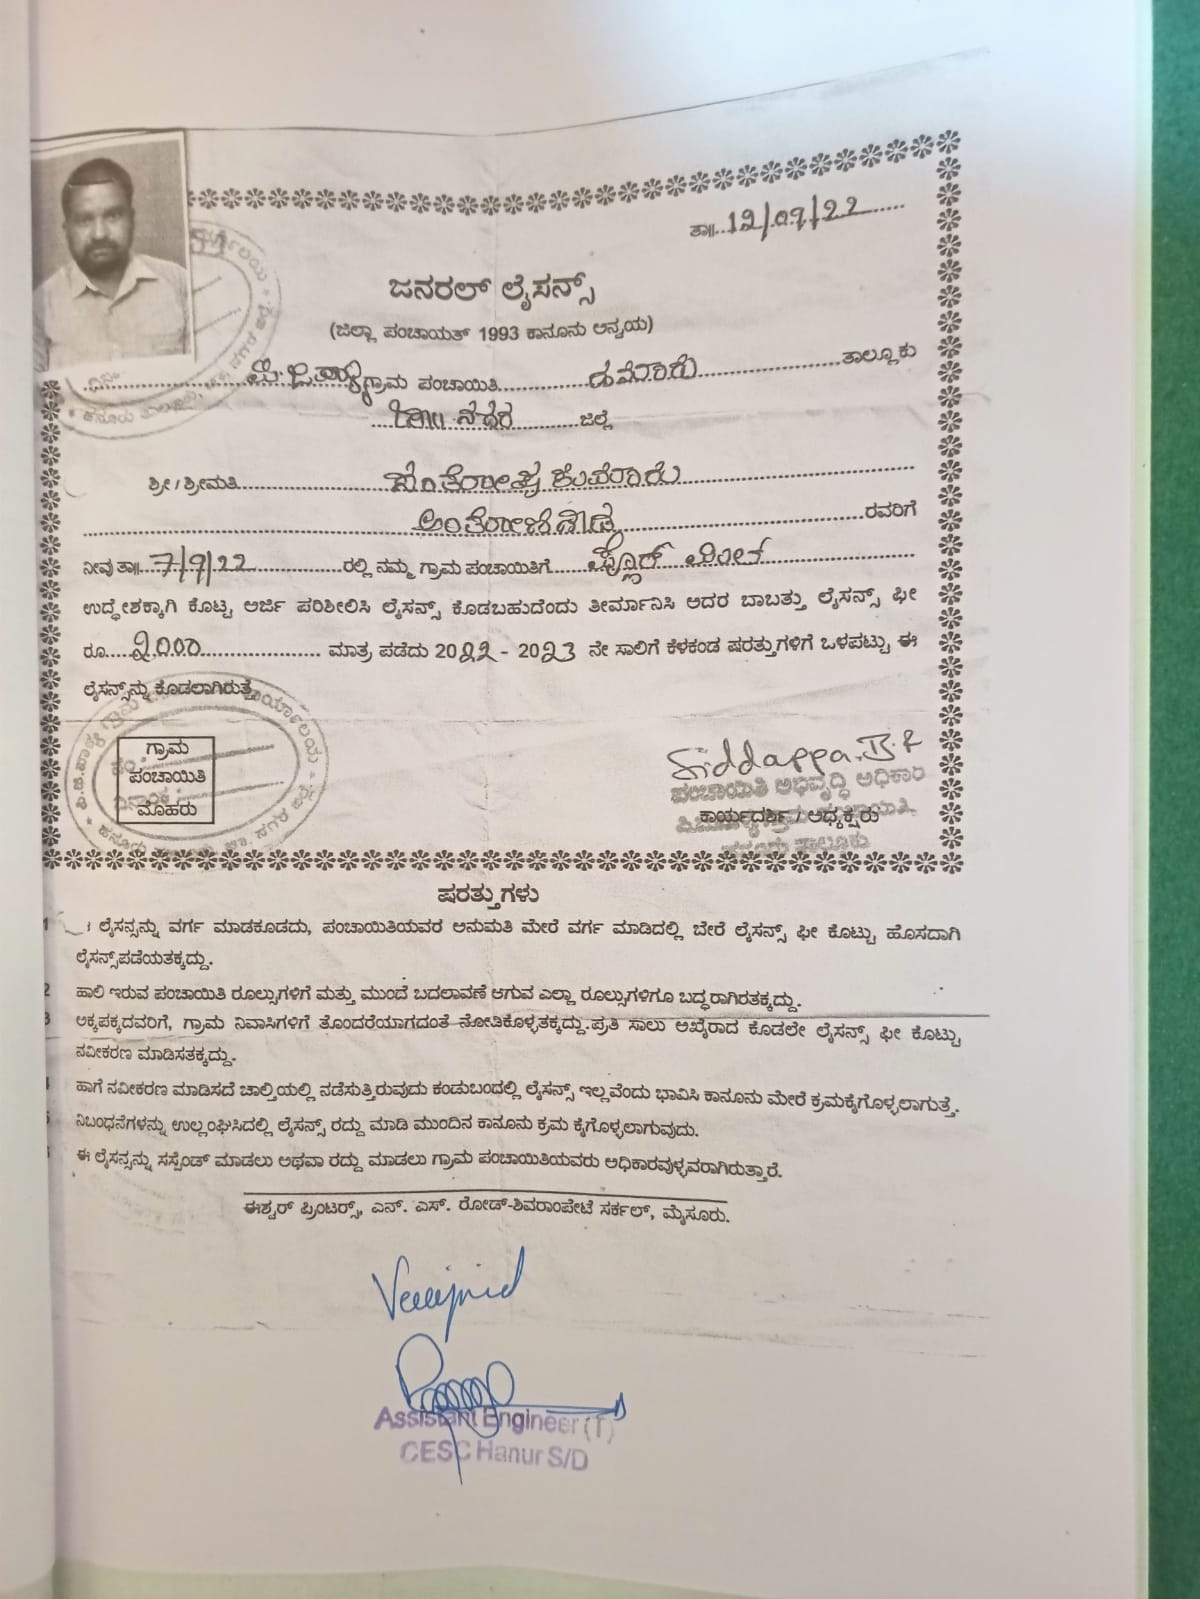 ತಾ॥..12/09/22......
ಜನರಲ್ ಲೈಸನ್ಸ್
(ಜಿಲ್ಲಾ ಪಂಚಾಯತ್ 1993 ಕಾನೂನು ಅನ್ವಯ)
ಗ್ರಾಮ ಪಂಚಾಯಿತಿ ತಾಲ್ಲೂಕು
ಜಿಲ್ಲೆ
ಶ್ರೀ / ಶ್ರೀಮತಿ
ರವರಿಗೆ
ನೀವು ತಾ॥..7/9/22............ರಲ್ಲಿ ನಮ್ಮ ಗ್ರಾಮ ಪಂಚಾಯಿತಿಗೆ
ಉದ್ಧೇಶಕ್ಕಾಗಿ ಕೊಟ್ಟ ಅರ್ಜಿ ಪರಿಶೀಲಿಸಿ ಲೈಸನ್ಸ್ ಕೊಡಬಹುದೆಂದು ತೀರ್ಮಾನಿಸಿ ಅದರ ಬಾಬತ್ತು ಲೈಸನ್ಸ್ ಫೀ
ರೂ. ಮಾತ್ರ ಪಡೆದು 2022 - 2023 ನೇ ಸಾಲಿಗೆ ಕೆಳಕಂಡ ಷರತ್ತುಗಳಿಗೆ ಒಳಪಟ್ಟು ಈ
ಲೈಸನ್ಸ್‌ನ್ನು ಕೊಡಲಾಗಿರುತ್ತೆ.
ಗ್ರಾಮ
ಪಂಚಾಯಿತಿ
ಮೊಹರು
Siddappa.B.
ಪಂಚಾಯಿತಿ ಅಭಿವೃದ್ಧಿ ಅಧಿಕಾರಿ
ಕಾರ್ಯದರ್ಶಿ / ಅಧ್ಯಕ್ಷರು
ಷರತ್ತುಗಳು
1 ಲೈಸನ್ಸನ್ನು ವರ್ಗ ಮಾಡಕೂಡದು, ಪಂಚಾಯಿತಿಯವರ ಅನುಮತಿ ಮೇರೆ ವರ್ಗ ಮಾಡಿದಲ್ಲಿ ಬೇರೆ ಲೈಸನ್ಸ್ ಫೀ ಕೊಟ್ಟು ಹೊಸದಾಗಿ
ಲೈಸನ್ಸ್‌ಪಡೆಯತಕ್ಕದ್ದು.
2 ಹಾಲಿ ಇರುವ ಪಂಚಾಯಿತಿ ರೂಲ್ಸುಗಳಿಗೆ ಮತ್ತು ಮುಂದೆ ಬದಲಾವಣೆ ಆಗುವ ಎಲ್ಲಾ ರೂಲ್ಸುಗಳಿಗೂ ಬದ್ಧರಾಗಿರತಕ್ಕದ್ದು.
3 ಅಕ್ಕಪಕ್ಕದವರಿಗೆ, ಗ್ರಾಮ ನಿವಾಸಿಗಳಿಗೆ ತೊಂದರೆಯಾಗದಂತೆ ನೋಡಿಕೊಳ್ಳತಕ್ಕದ್ದು.ಪ್ರತಿ ಸಾಲು ಅಖೈರಾದ ಕೂಡಲೇ ಲೈಸನ್ಸ್ ಫೀ ಕೊಟ್ಟು
ನವೀಕರಣ ಮಾಡಿಸತಕ್ಕದ್ದು.
ಹಾಗೆ ನವೀಕರಣ ಮಾಡಿಸದೆ ಚಾಲ್ತಿಯಲ್ಲಿ ನಡೆಸುತ್ತಿರುವುದು ಕಂಡುಬಂದಲ್ಲಿ ಲೈಸನ್ಸ್ ಇಲ್ಲವೆಂದು ಭಾವಿಸಿ ಕಾನೂನು ಮೇರೆ ಕ್ರಮಕೈಗೊಳ್ಳಲಾಗುತ್ತೆ.
ನಿಬಂಧನೆಗಳನ್ನು ಉಲ್ಲಂಘಿಸಿದಲ್ಲಿ ಲೈಸನ್ಸ್ ರದ್ದು ಮಾಡಿ ಮುಂದಿನ ಕಾನೂನು ಕ್ರಮ ಕೈಗೊಳ್ಳಲಾಗುವುದು.
ಈ ಲೈಸನ್ಸನ್ನು ಸಸ್ಪೆಂಡ್ ಮಾಡಲು ಅಥವಾ ರದ್ದು ಮಾಡಲು ಗ್ರಾಮ ಪಂಚಾಯಿತಿಯವರು ಅಧಿಕಾರವುಳ್ಳವರಾಗಿರುತ್ತಾರೆ.
ಈಶ್ವರ್ ಪ್ರಿಂಟರ್ಸ್, ಎನ್. ಎಸ್. ರೋಡ್-ಶಿವರಾಂಪೇಟೆ ಸರ್ಕಲ್, ಮೈಸೂರು.
Assistant Engineer (T)
CESC Hanur S/D